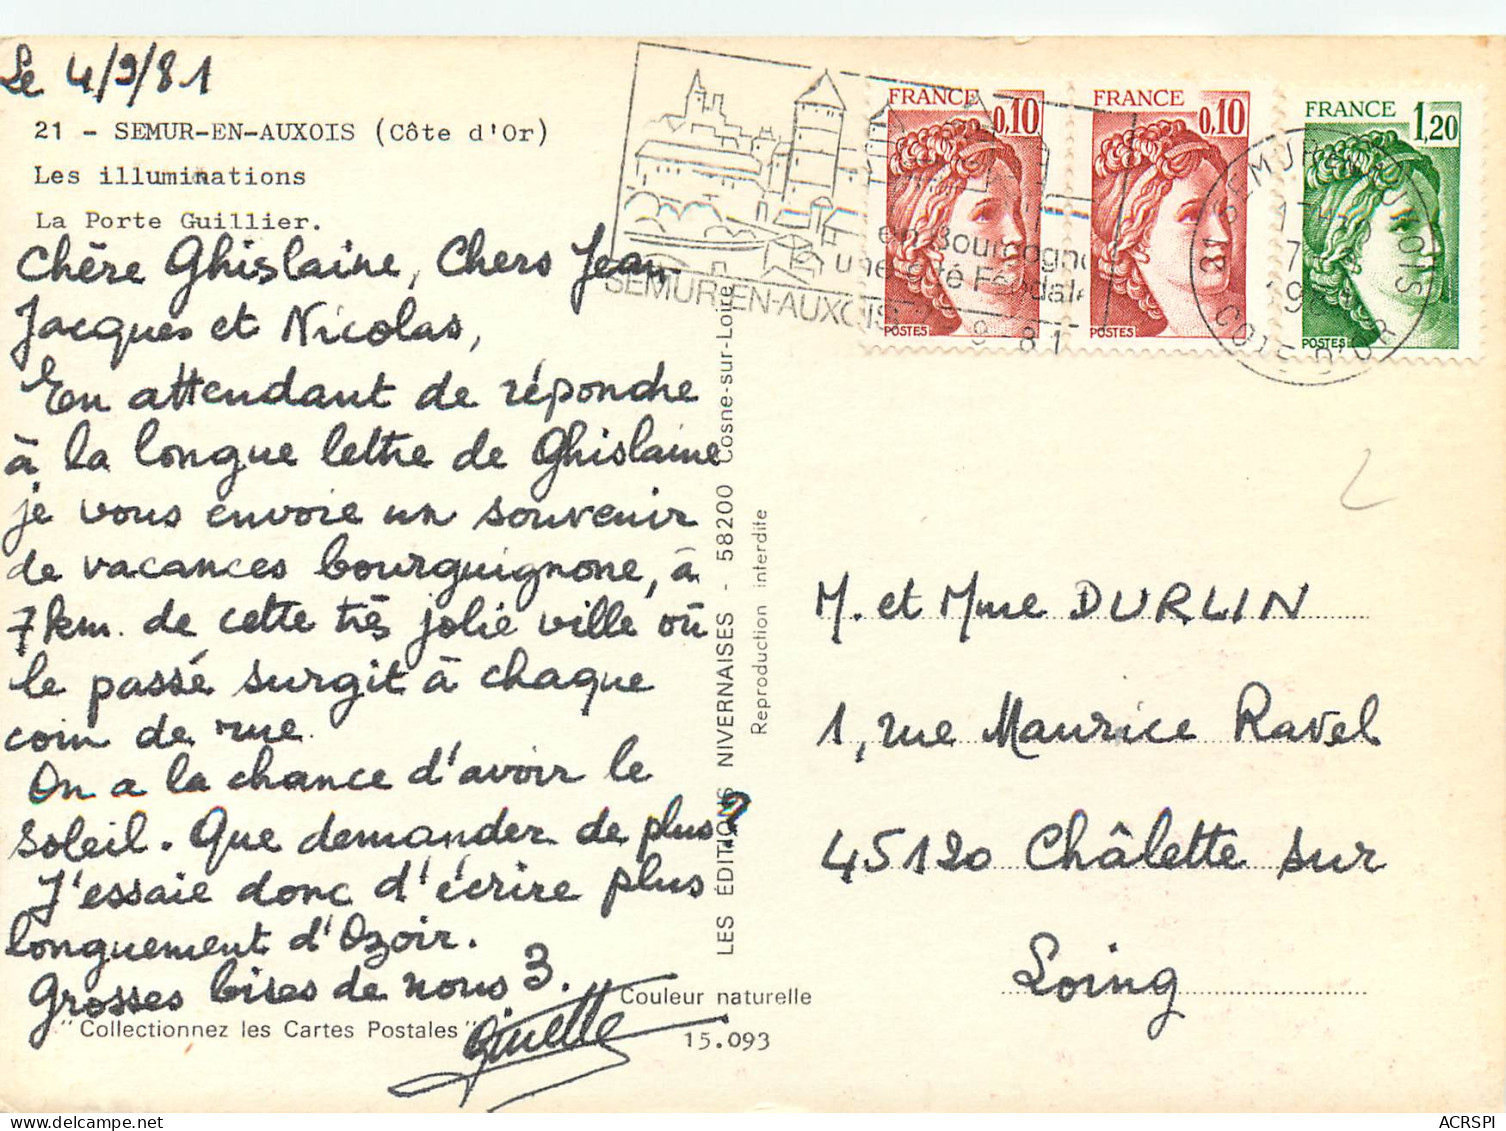 Le 4/9/81
21 - SEMUR-EN-AUXOIS (Côte d'Or)
Les illuminations
La Porte Guillier.
Chère Ghislaine, Chers Jean
Jacques et Nicolas,
En attendant de répondre
à la longue lettre de Ghislaine
je vous envoie un souvenir
de vacances bourguignone, à
7 km. de cette très jolie ville où
le passé surgit à chaque
coin de rue.
On a la chance d'avoir le
soleil. Que demander de plus?
J'essaie donc d'écrire plus
longuement d'Ozoir.
Grosses bises de nous 3.
Ginette
"Collectionnez les Cartes Postales"
Couleur naturelle
15.093
LES ÉDITIONS NIVERNAISES - 58200 Cosne-sur-Loire
Reproduction interdite
en Bourgogne
une Cité Féodale
SEMUR-EN-AUXOIS
9-81
FRANCE
0,10
POSTES
FRANCE
0,10
POSTES
FRANCE
1,20
POSTES
21 SEMUR EN AUXOIS
COTE D'OR
2
M. et Mme DURLIN
1, rue Maurice Ravel
45120 Châlette sur
Loing
delcampe.net
ACRSPI